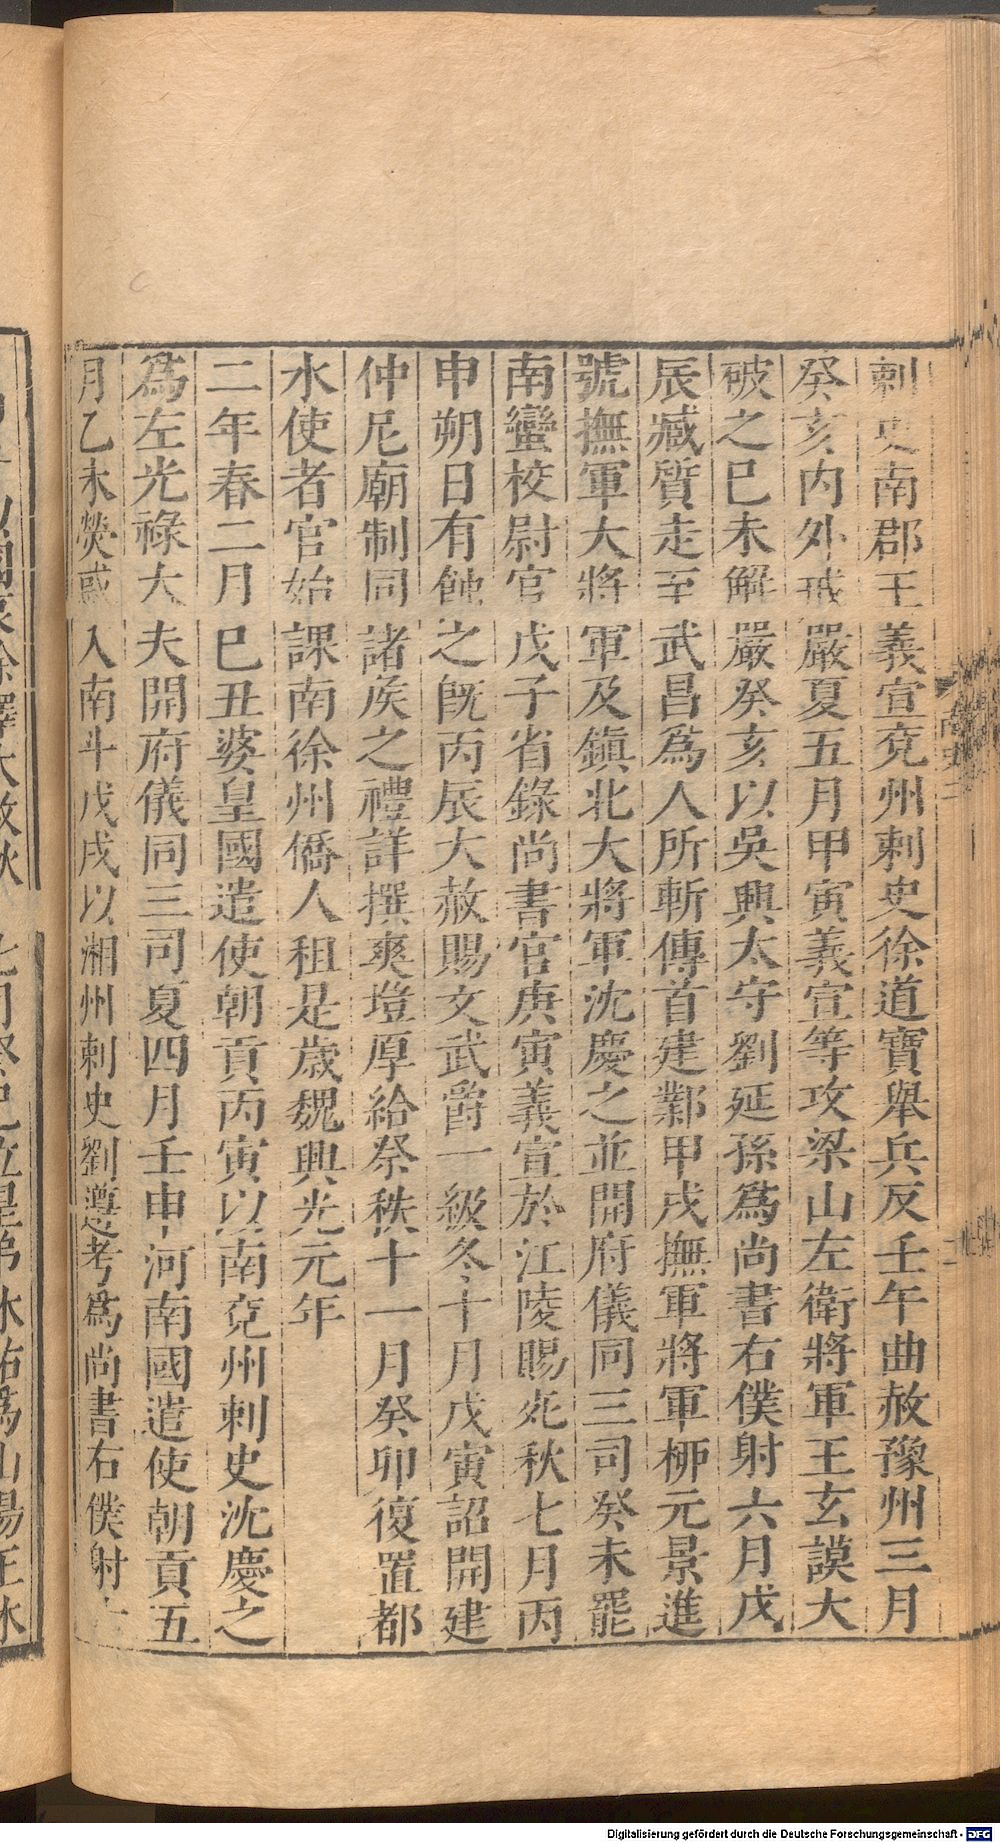 刺史南郡王義宣兗州刺史徐道寶舉兵反壬午曲赦豫州三月
癸亥内外戒嚴夏五月甲寅義宣等攻梁山左衛將軍王玄謨大
破之巳未解嚴癸亥以吳興太守劉延孫爲尚書右僕射六月戊
辰臧質走至武昌爲人所斬傳首建鄴甲戌撫軍將軍柳元景進
號撫軍大將軍及鎭北大將軍沈慶之並開府儀同三司癸未罷
南蠻校尉官戊子省錄尚書官庚寅義宣於江陵賜死秋七月丙
申朔日有蝕之旣丙辰大赦賜文武爵一級冬十月戊寅詔開建
仲尼廟制同諸矦之禮詳撰爽塏厚給祭秩十一月癸卯復置都
水使者官始課南徐州僑人租是歲魏興光元年
二年春二月巳丑婆皇國遣使朝貢丙寅以南兗州刺史沈慶之
爲左光祿大夫開府儀同三司夏四月壬申河南國遣使朝貢五
月乙未熒惑入南斗戊戌以湘州刺史劉遵考爲尚書右僕射
Digitalisierung gefördert durch die Deutsche Forschungsgemeinschaft - DFG